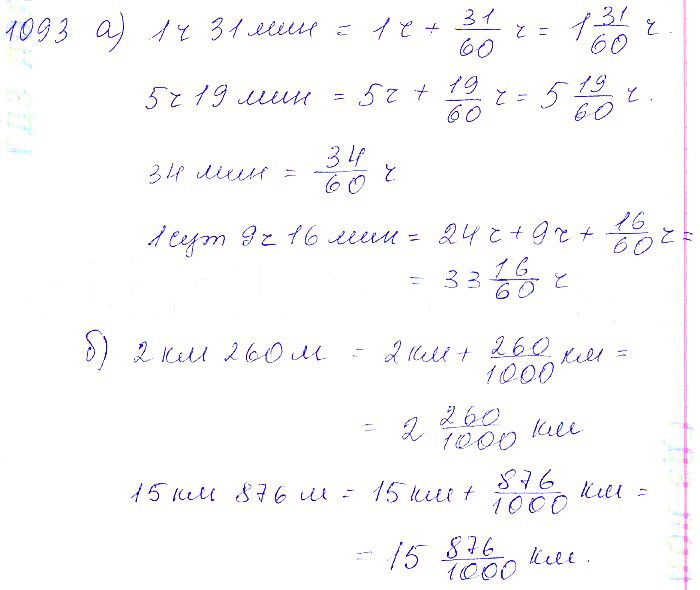 1093 а) 1ч 31 мин = 1ч + 31/60 ч = 1 31/60 ч.
5ч 19 мин = 5ч + 19/60 ч = 5 19/60 ч.
34 мин = 34/60 ч
1 сут 9ч 16 мин = 24ч + 9ч + 16/60 ч =
= 33 16/60 ч
б) 2 км 260 м = 2 км + 260/1000 км =
= 2 260/1000 км
15 км 876 м = 15 км + 876/1000 км =
= 15 876/1000 км.